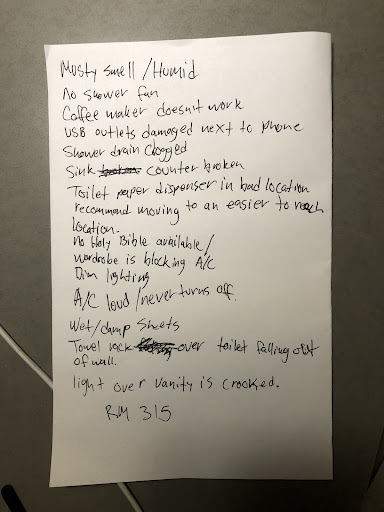 Mosty smell / Humid
no shower fan
Coffee maker doesn't work
USB outlets damaged next to phone
Shower drain clogged
Sink counter broken
Toilet paper dispenser in bad location
recommend moving to an easier to reach
location.
No Holy Bible available /
wardrobe is blocking A/C
Dim lighting
A/C loud / never turns off.
Wet/damp sheets
Towel rack over toilet falling out
of wall.
light over vanity is crooked.
RM 315